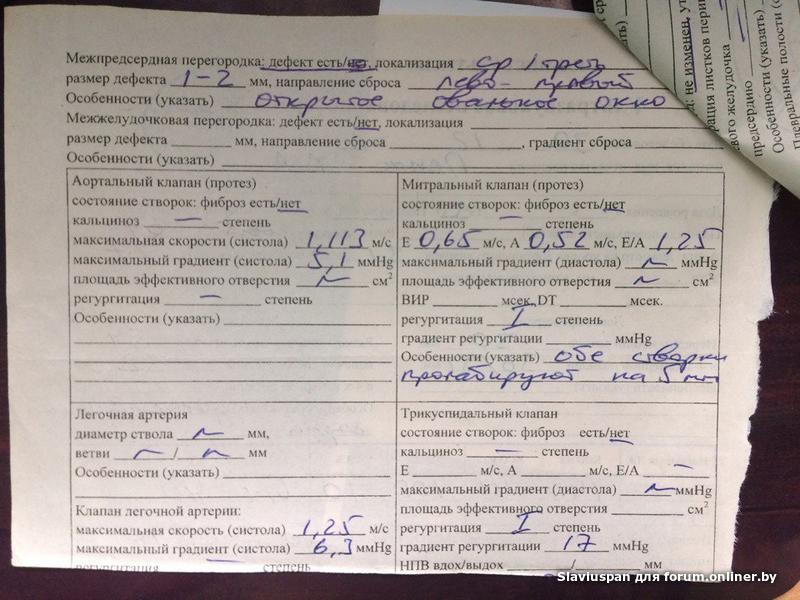 Межпредсердная перегородка: дефект есть/нет, локализация ср 1 треть
размер дефекта 1-2 мм, направление сброса лево-правый
Особенности (указать) открытое овальное окно
Межжелудочковая перегородка: дефект есть/нет, локализация
размер дефекта мм, направление сброса , градиент сброса
Особенности (указать)
Аортальный клапан (протез)
состояние створок: фиброз есть/нет
кальциноз — степень
максимальная скорости (систола) 1,113 м/с
максимальный градиент (систола) 5,1 mmHg
площадь эффективного отверстия ~ см²
регургитация — степень
Особенности (указать)
Митральный клапан (протез)
состояние створок: фиброз есть/нет
кальциноз — степень
Е 0,65 м/с, А 0,52 м/с, Е/А 1,25
максимальный градиент (диастола) ~ mmHg
площадь эффективного отверстия ~ см²
ВИР мсек, DT мсек.
регургитация I степень
градиент регургитации ммHg
Особенности (указать) обе створки
пролабируют на 5 мм
Легочная артерия
диаметр ствола ~ мм,
ветви ~ / ~ мм
Особенности (указать)
Клапан легочной артерии:
максимальная скорость (систола) 1,25 м/с
максимальный градиент (систола) 6,3 mmHg
регургитация степень
Трикуспидальный клапан
состояние створок: фиброз есть/нет
кальциноз — степень
Е м/с, А м/с, Е/А —
максимальный градиент (диастола) ~ ммHg
площадь эффективного отверстия см²
регургитация I степень
градиент регургитации 17 ммHg
НПВ вдох/выдох / мм
не изменен,
рация листков пери
вого желудочка
предсердию
Особенности (указать)
Плевральные полости (
Slaviuspan для forum.onliner.by